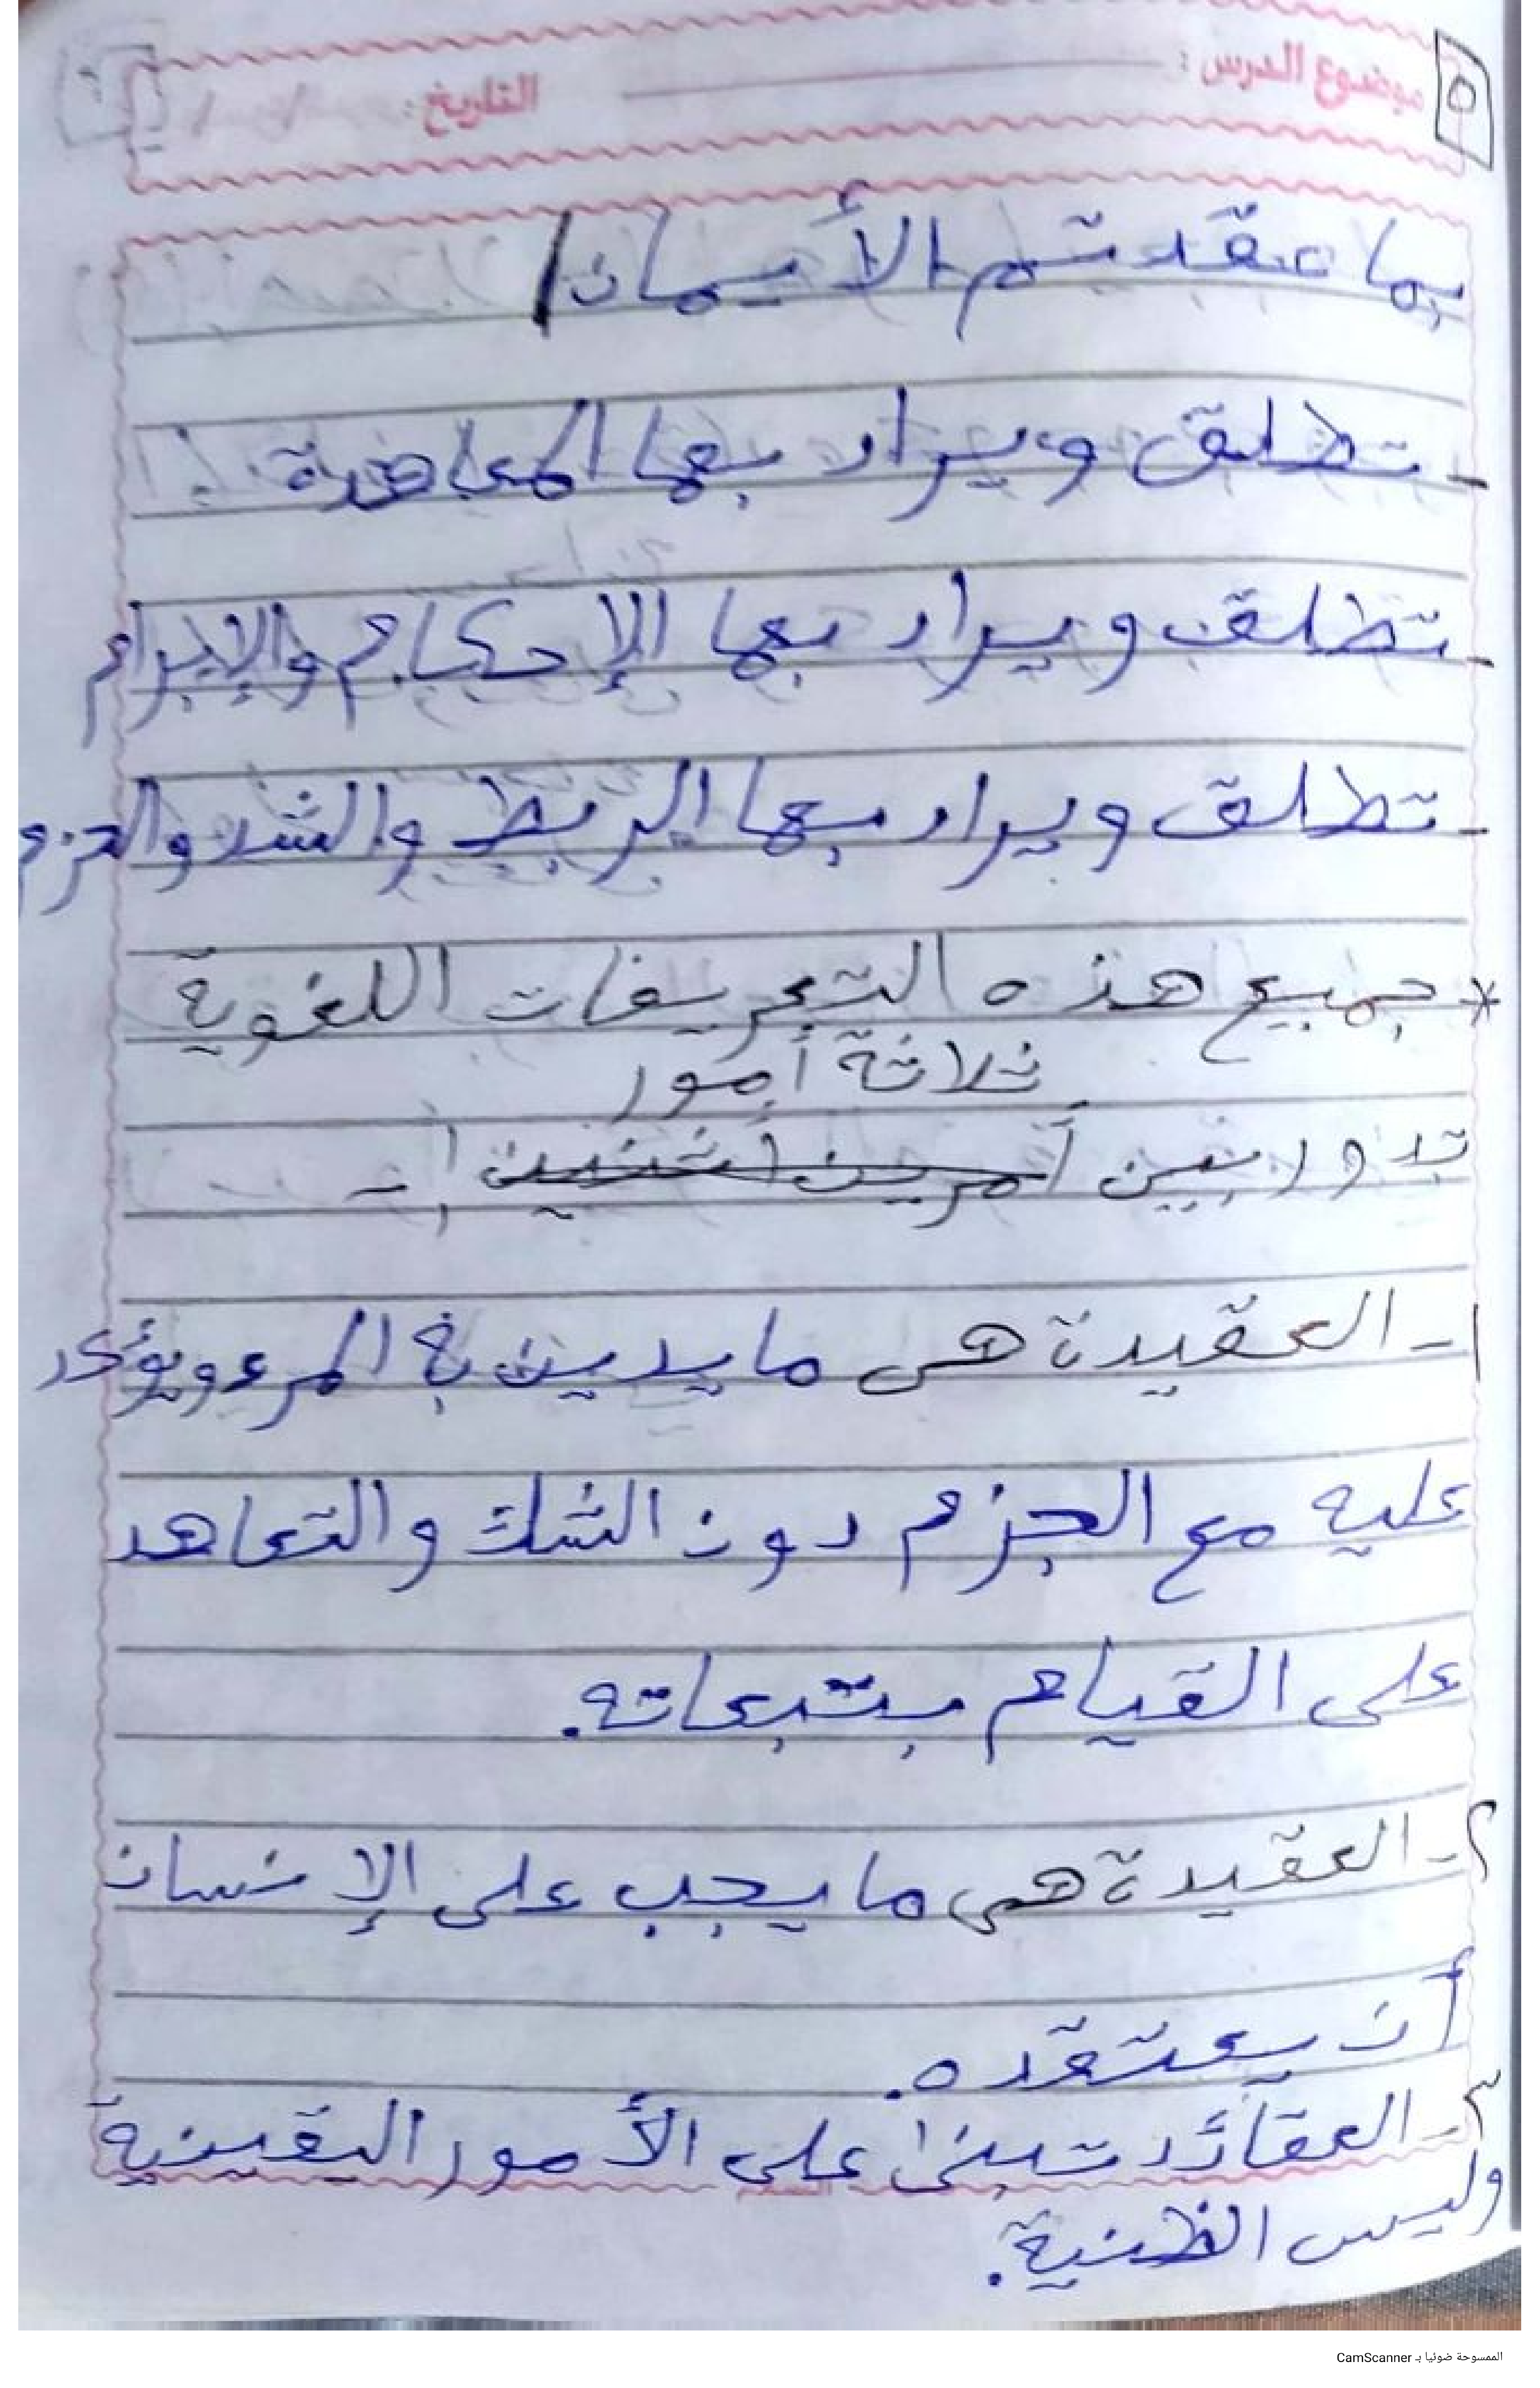 موضوع الدرس : التاريخ : / /
٥
بما عقدتم الأيمان/
- تطلق ويراد بها المعاهدة .
- تطلق ويراد بها الإحكام والإبرام
- تطلق ويراد بها الربط والشد والحزم
* جميع هذه التعريفات اللغوية
ثلاثة أمور
تدور بين أمرين اثنين :-
١- العقيدة هى ما يدين به المرء ويؤكد
عليه مع الجزم دون الشك والتعاهد
على القيام بتبعاته.
٢- العقيدة هى ما يجب على الإنسان
أن يعتقده.
٣- العقائد تبنى على الأمور اليقينية
وليس الظنية.
الممسوحة ضوئيا بـ CamScanner